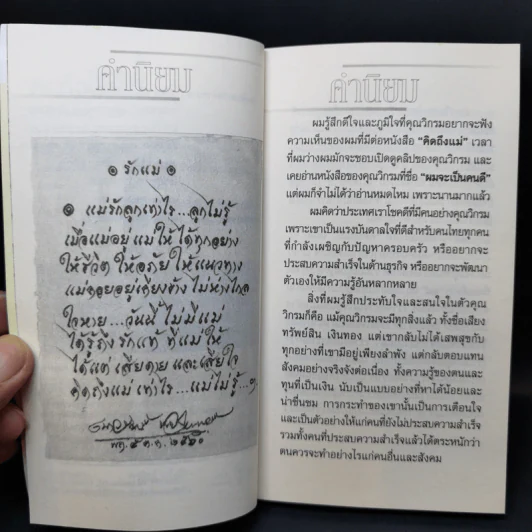 คำนิยม
๏ รักแม่ ๏
๏ แม่รักลูกเท่าไร...ลูกไม่รู้
เมื่อแม่อยู่ แม่ให้ ได้ทุกอย่าง
ให้ชีวิต ให้อภัย ให้แนวทาง
แม่คอยอยู่เคียงข้าง ไม่ห่างไกล
ใจหาย...วันนี้ ไม่มีแม่
ได้รู้ถึง รักแท้ ที่แม่ให้
ได้แต่ เสียดาย และเสียใจ
คิดถึงแม่ เท่าไร...แม่ไม่รู้...ๆ
คำนิยม
ผมรู้สึกดีใจและภูมิใจที่คุณวิกรมอยากจะฟัง
ความเห็นของผมที่มีต่อหนังสือ "คิดถึงแม่" เวลา
ที่ผมว่างผมมักจะชอบเปิดดูคลิปของคุณวิกรม และ
เคยอ่านหนังสือของคุณวิกรมที่ชื่อ "ผมจะเป็นคนดี"
แต่ผมก็จำไม่ได้ว่าอ่านหมดไหม เพราะนานมากแล้ว
ผมคิดว่าประเทศเราโชคดีที่มีคนอย่างคุณวิกรม
เพราะเขาเป็นแรงบันดาลใจที่ดีสำหรับคนไทยทุกคน
ที่กำลังเผชิญกับปัญหาครอบครัว หรืออยากจะ
ประสบความสำเร็จในด้านธุรกิจ หรืออยากจะพัฒนา
ตัวเองให้มีความรู้อันหลากหลาย
สิ่งที่ผมรู้สึกประทับใจและสนใจในตัวคุณ
วิกรมก็คือ แม้คุณวิกรมจะมีทุกสิ่งแล้ว ทั้งชื่อเสียง
ทรัพย์สิน เงินทอง แต่เขากลับไม่ได้เสพสุขกับ
ทุกอย่างที่เขามีอยู่เพียงลำพัง แต่กลับตอบแทน
สังคมอย่างจริงจังต่อเนื่อง ทั้งความรู้ของตนและ
ทุนที่เป็นเงิน นับเป็นแบบอย่างที่หาได้น้อยและ
น่าชื่นชม การกระทำของเขานั้นเป็นการเตือนใจ
และเป็นตัวอย่างให้แก่คนที่ยังไม่ประสบความสำเร็จ
รวมทั้งคนที่ประสบความสำเร็จแล้วได้ตระหนักว่า
ตนควรจะทำอย่างไรแก่คนอื่นและสังคม